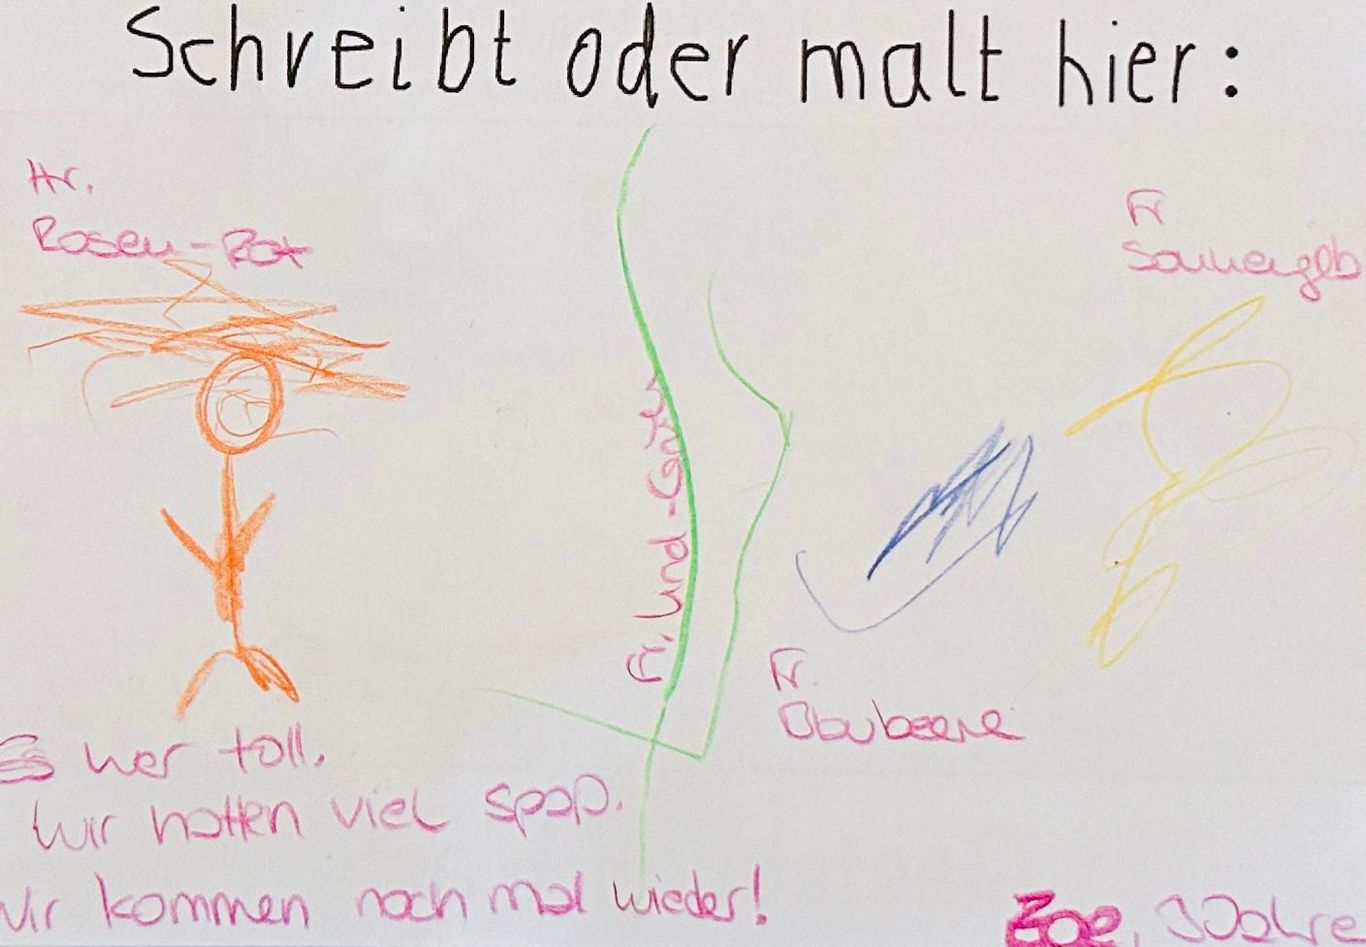 Schreibt oder malt hier:
Hr.
Rosen-Rot
Fr
Sonnengelb
Fr. Und-Grün
Fr.
Blaubeere
Es war toll.
Wir hatten viel Spaß.
Wir kommen noch mal wieder!
Zoe, 3 Jahre